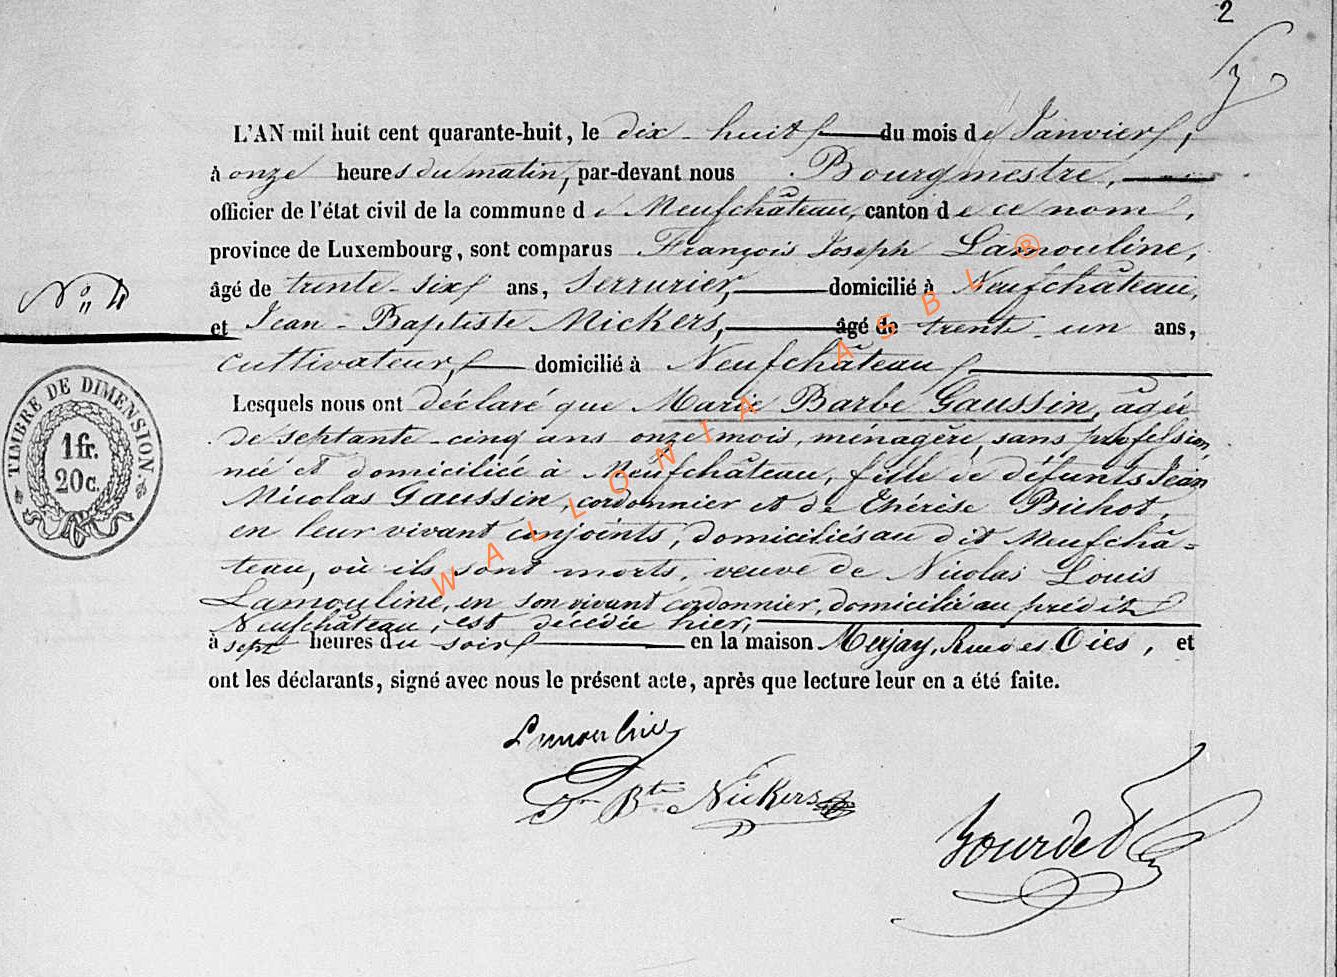 2
L'AN mil huit cent quarante-huit, le dix-huit du mois de Janvier,
à onze heures du matin, par-devant nous Bourgmestre,
officier de l'état civil de la commune de Neufchâteau, canton de ce nom,
province de Luxembourg, sont comparus François Joseph Lamouline,
âgé de trente-six ans, Serrurier, domicilié à Neufchâteau,
N° 4
et Jean-Baptiste Nickers, âgé de trente-un ans,
cultivateur, domicilié à Neufchâteau
Lesquels nous ont déclaré que Marie Barbe Gaussin, âgée
de septante-cinq ans onze mois, ménagère, sans profession,
née et domiciliée à Neufchâteau, fille de défunts Jean
Nicolas Gaussin, cordonnier et de Thérèse
en leur vivant conjoints, domiciliés au dit Neufchâ=
teau, où ils sont morts, veuve de Nicolas Louis
Lamouline, en son vivant cordonnier, domicilié au prédit
Neufchâteau, est décédée hier,
à sept heures du soir en la maison Merjay, Rue des Oies, et
ont les déclarants, signé avec nous le présent acte, après que lecture leur en a été faite.
TIMBRE DE DIMENSION
1 fr.
20 c.
Lamouline
Jn Bte Nickers
Bourdet
WALLONIA ASBL ®